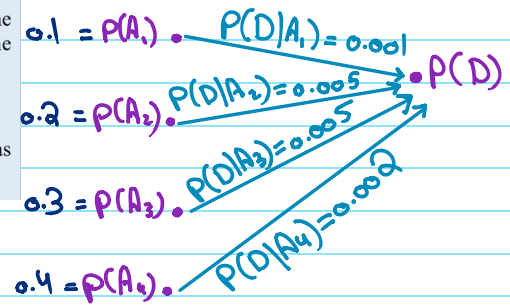 ne
ne
as
0.1 = P(A₁)
P(D|A₁) = 0.001
P(D)
0.2 = P(A₂)
P(D|A₂) = 0.005
0.3 = P(A₃)
P(D|A₃) = 0.005
0.4 = P(A₄)
P(D|A₄) = 0.002